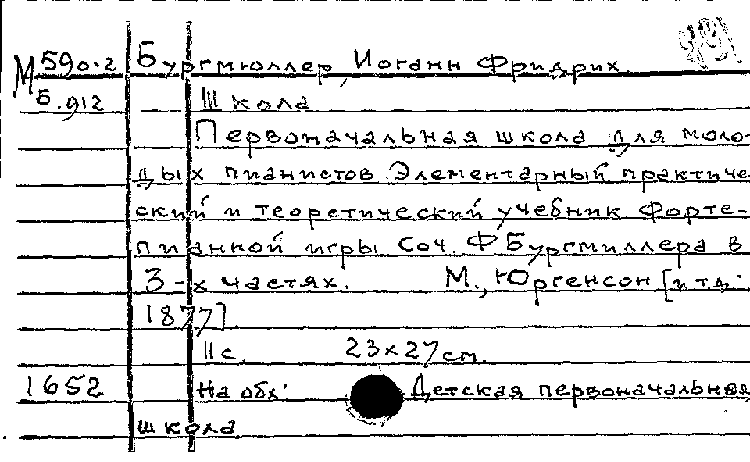 М 590.2 Бургмюллер, Иоганн Фридрих
Б.912 Школа
Первоначальная школа для моло-
дых пианистов Элементарный практиче
ский и теоретический учебник форте-
пианной игры Соч. Ф Бургмиллера в
3-х частях. М., Юргенсон [и т.д.
1877]
11 с. 23x27 см.
1652 На обл: Детская первоначальная
школа